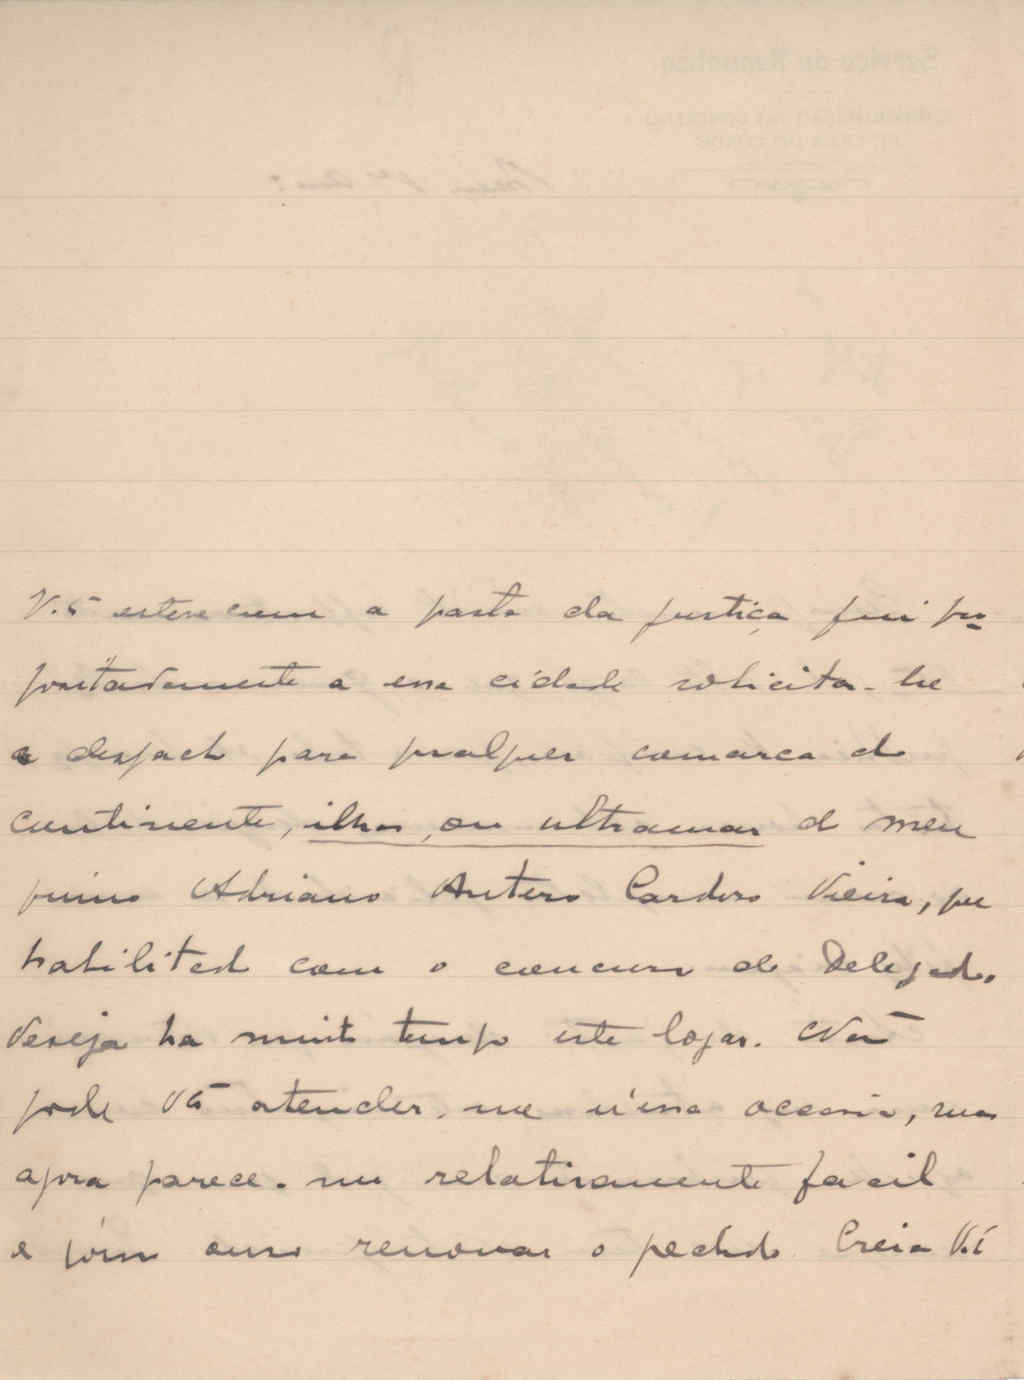 V. Ex.ª esteve com a pasta da Justiça fui pro
positadamente a essa cidade solicitar-lhe
o despacho para qualquer comarca do
continente, ilhas, ou ultramar do meu
primo Adriano Antero Cardoso Vieira, que
habilitado com o concurso de Delegado,
deseja ha muito tempo este logar. Não
pode V. Ex.ª atender-me n'essa occasião, mas
agora parece-me relativamente facil
e por isso ouso renovar o pedido. Creia V. Ex.ª